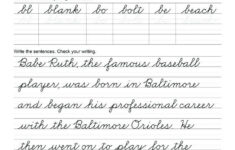 bl blank bo bolt be beach
Write the sentences. Check your writing.
Babe Ruth, the famous baseball
player, was born in Baltimore
and began his professional career
with the Baltimore Orioles. He
then went on to play for the